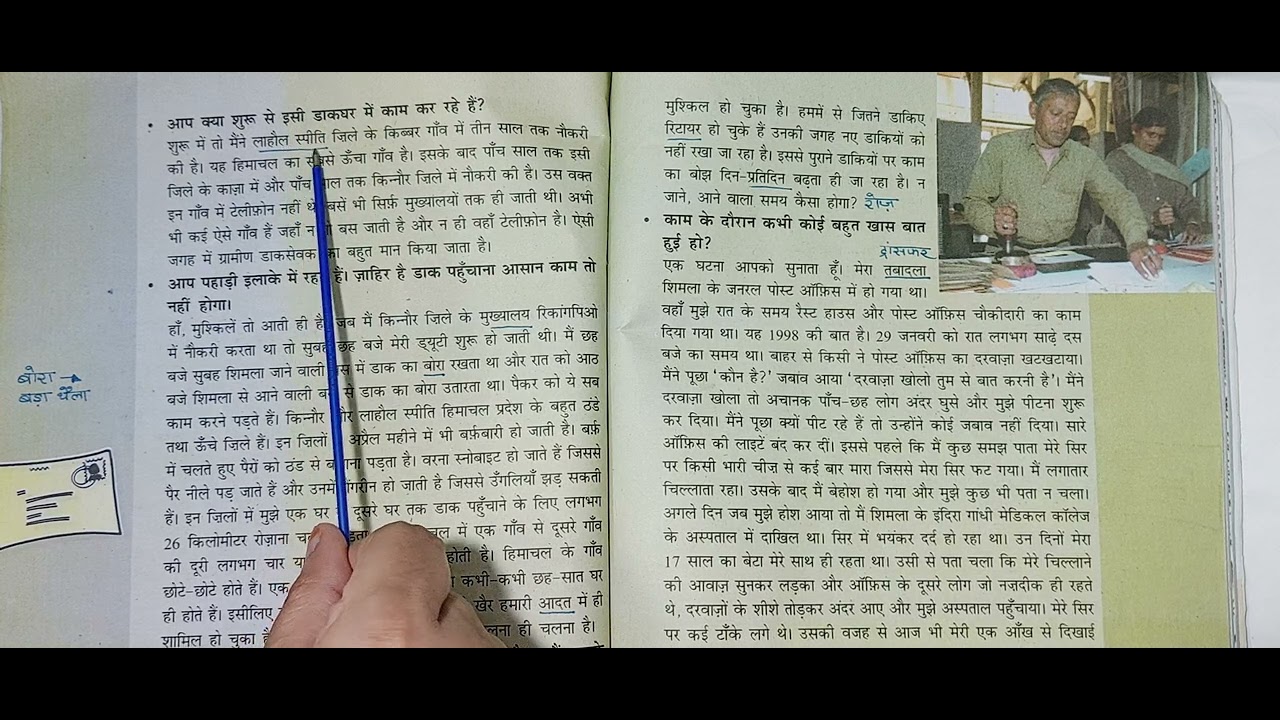 आप क्या शुरू से इसी डाकघर में काम कर रहे हैं?
शुरू में तो मैंने लाहौल स्पीति ज़िले के किब्बर गाँव में तीन साल तक नौकरी
की है। यह हिमाचल का सबसे ऊँचा गाँव है। इसके बाद पाँच साल तक इसी
ज़िले के काज़ा में और पाँच साल तक किन्नौर ज़िले में नौकरी की है। उस वक्त
इन गाँव में टेलीफ़ोन नहीं थे बसें भी सिर्फ़ मुख्यालयों तक ही जाती थी। अभी
भी कई ऐसे गाँव हैं जहाँ न तो बस जाती है और न ही वहाँ टेलीफ़ोन है। ऐसी
जगह में ग्रामीण डाकसेवक का बहुत मान किया जाता है।
आप पहाड़ी इलाके में रहते हैं। ज़ाहिर है डाक पहुँचाना आसान काम तो
नहीं होगा।
हाँ, मुश्किलें तो आती ही हैं जब मैं किन्नौर ज़िले के मुख्यालय रिकांगपिओ
में नौकरी करता था तो सुबह छह बजे मेरी ड्यूटी शुरू हो जाती थी। मैं छह
बजे सुबह शिमला जाने वाली बस में डाक का बोरा रखता था और रात को आठ
बजे शिमला से आने वाली बस से डाक का बोरा उतारता था। पैकर को ये सब
काम करने पड़ते हैं। किन्नौर और लाहौल स्पीति हिमाचल प्रदेश के बहुत ठंडे
तथा ऊँचे ज़िले हैं। इन ज़िलों में अप्रैल महीने में भी बर्फ़बारी हो जाती है। बर्फ़
में चलते हुए पैरों को ठंड से बचाना पड़ता है। वरना स्नोबाइट हो जाते हैं जिससे
पैर नीले पड़ जाते हैं और उनमें गैंगरीन हो जाती है जिससे उँगलियाँ झड़ सकती
हैं। इन ज़िलों में मुझे एक घर से दूसरे घर तक डाक पहुँचाने के लिए लगभग
26 किलोमीटर रोज़ाना में एक गाँव से दूसरे गाँव
की दूरी लगभग चार होती है। हिमाचल के गाँव
छोटे-छोटे होते हैं। एक कभी-कभी छह-सात घर
ही होते हैं। इसीलिए खैर हमारी आदत में ही
शामिल हो चुका चलना ही चलना है।
बोरा →
बड़ा थैला
मुश्किल हो चुका है। हममें से जितने डाकिए
रिटायर हो चुके हैं उनकी जगह नए डाकियों को
नहीं रखा जा रहा है। इससे पुराने डाकियों पर काम
का बोझ दिन-प्रतिदिन बढ़ता ही जा रहा है। न
जाने, आने वाला समय कैसा होगा? रोज़
काम के दौरान कभी कोई बहुत खास बात
हुई हो?
ट्रांसफर
एक घटना आपको सुनाता हूँ। मेरा तबादला
शिमला के जनरल पोस्ट ऑफ़िस में हो गया था।
वहाँ मुझे रात के समय रैस्ट हाउस और पोस्ट ऑफ़िस चौकीदारी का काम
दिया गया था। यह 1998 की बात है। 29 जनवरी को रात लगभग साढ़े दस
बजे का समय था। बाहर से किसी ने पोस्ट ऑफ़िस का दरवाज़ा खटखटाया।
मैंने पूछा 'कौन है?' जबाव आया 'दरवाज़ा खोलो तुम से बात करनी है'। मैंने
दरवाज़ा खोला तो अचानक पाँच-छह लोग अंदर घुसे और मुझे पीटना शुरू
कर दिया। मैंने पूछा क्यों पीट रहे हैं तो उन्होंने कोई जबाव नहीं दिया। सारे
ऑफ़िस की लाइटें बंद कर दीं। इससे पहले कि मैं कुछ समझ पाता मेरे सिर
पर किसी भारी चीज़ से कई बार मारा जिससे मेरा सिर फट गया। मैं लगातार
चिल्लाता रहा। उसके बाद मैं बेहोश हो गया और मुझे कुछ भी पता न चला।
अगले दिन जब मुझे होश आया तो मैं शिमला के इंदिरा गांधी मेडिकल कॉलेज
के अस्पताल में दाखिल था। सिर में भयंकर दर्द हो रहा था। उन दिनों मेरा
17 साल का बेटा मेरे साथ ही रहता था। उसी से पता चला कि मेरे चिल्लाने
की आवाज़ सुनकर लड़का और ऑफ़िस के दूसरे लोग जो नज़दीक ही रहते
थे, दरवाज़ों के शीशे तोड़कर अंदर आए और मुझे अस्पताल पहुँचाया। मेरे सिर
पर कई टाँके लगे थे। उसकी वजह से आज भी मेरी एक आँख से दिखाई